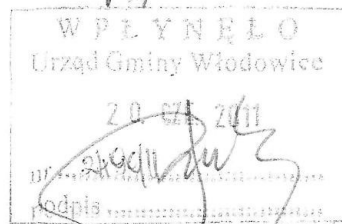 WPŁYNĘŁO
Urząd Gminy Włodowice
20. CZE. 2011
nr
podpis